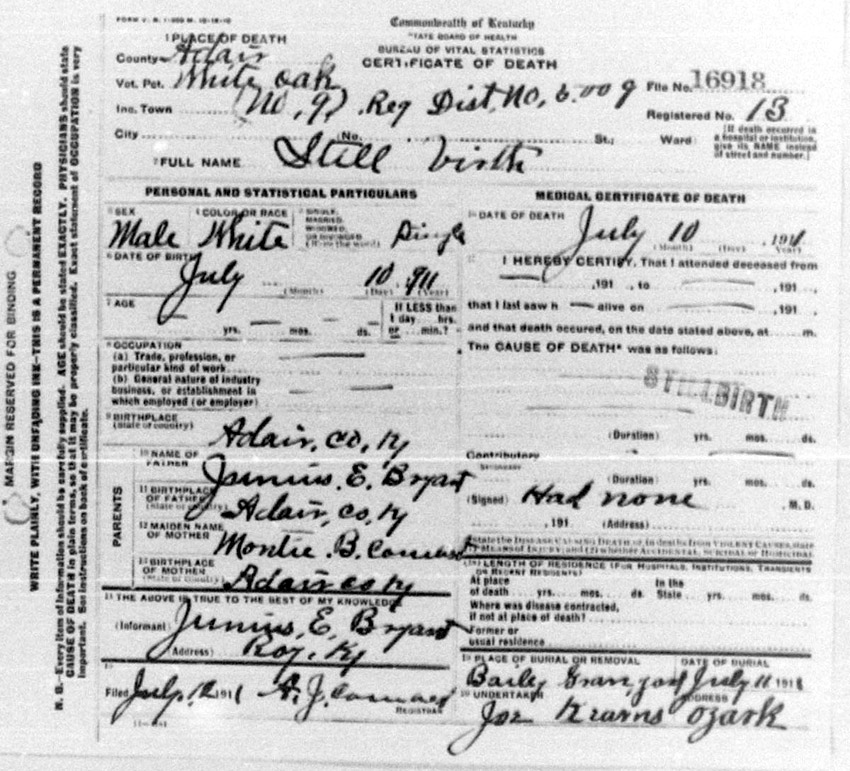 FORM V. S. 1-
Commonwealth of Kentucky
STATE BOARD OF HEALTH
BUREAU OF VITAL STATISTICS
CERTIFICATE OF DEATH
1 PLACE OF DEATH
County Adair
Vot. Pct. White oak
Inc. Town (No, 97) Reg Dist, No, 5.009
File No. 16918
Registered No. 13
City No. St.; Ward
[If death occurred in
a hospital or institution,
give its NAME instead
of street and number.]
2 FULL NAME Still birth
PERSONAL AND STATISTICAL PARTICULARS
3 SEX Male
4 COLOR OR RACE White
5 SINGLE,
MARRIED,
WIDOWED,
OR DIVORCED
(Write the word) Single
6 DATE OF BIRTH
July 10 911
(Month) (Day) (Year)
7 AGE
yrs. mos. ds.
If LESS than
1 day hrs.
or min.?
8 OCCUPATION
(a) Trade, profession, or
particular kind of work
(b) General nature of industry
business, or establishment in
which employed (or employer)
9 BIRTHPLACE
(State or country) Adair, co, Ky
PARENTS
10 NAME OF
FATHER Junius. E. Bryant
11 BIRTHPLACE
OF FATHER
(State or country) Adair, co, Ky
12 MAIDEN NAME
OF MOTHER Montie. B.
13 BIRTHPLACE
OF MOTHER
(State or Country) Adair co Ky
14 THE ABOVE IS TRUE TO THE BEST OF MY KNOWLEDGE
(Informant) Junius, E, Bryant
(Address) Roy, Ky
15
Filed July, 12 1911 A. J.
REGISTRAR
MEDICAL CERTIFICATE OF DEATH
16 DATE OF DEATH
July 10 1911
(Month) (Day)
17 I HEREBY CERTIFY, That I attended deceased from
,191 , to ,191 ,
that I last saw h alive on ,191 ,
and that death occured, on the date stated above, at m.
The CAUSE OF DEATH* was as follows:
STILLBIRTH
(Duration) yrs. mos. ds.
Contributory
SECONDARY
(Duration) yrs. mos. ds.
(Signed) Had none M. D.
, 191 (Address)
*State the DISEASE CAUSING DEATH, or, in deaths from VIOLENT CAUSES, state
(1) MEANS OF INJURY; and (2) whether ACCIDENTAL, SUICIDAL or HOMICIDAL
18 LENGTH OF RESIDENCE (FOR HOSPITALS, INSTITUTIONS, TRANSIENTS
OR RECENT RESIDENTS)
At place
of death yrs. mos. ds.
In the
State yrs. mos. ds.
Where was disease contracted,
if not at place of death?
Former or
usual residence
19 PLACE OF BURIAL OR REMOVAL
Baily Grav, yard
DATE OF BURIAL
July 11 1911
20 UNDERTAKER
Joe Kearns
ADDRESS
Ozark
11-
MARGIN RESERVED FOR BINDING
WRITE PLAINLY, WITH UNFADING INK—THIS IS A PERMANENT RECORD
N. B.—Every item of information should be carefully supplied. AGE should be stated EXACTLY. PHYSICIANS should state
CAUSE OF DEATH in plain terms, so that it may be properly classified. Exact statement of OCCUPATION is very
important. See instructions on back of certificate.